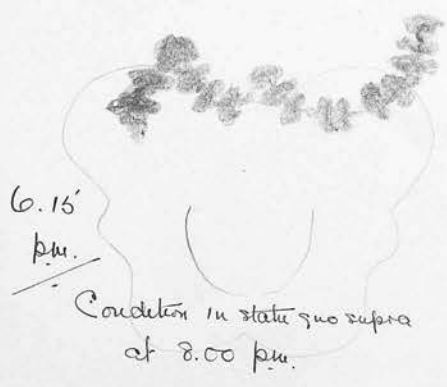 6.15
p.m.
Condition in statu quo supra
at 8.00 p.m.